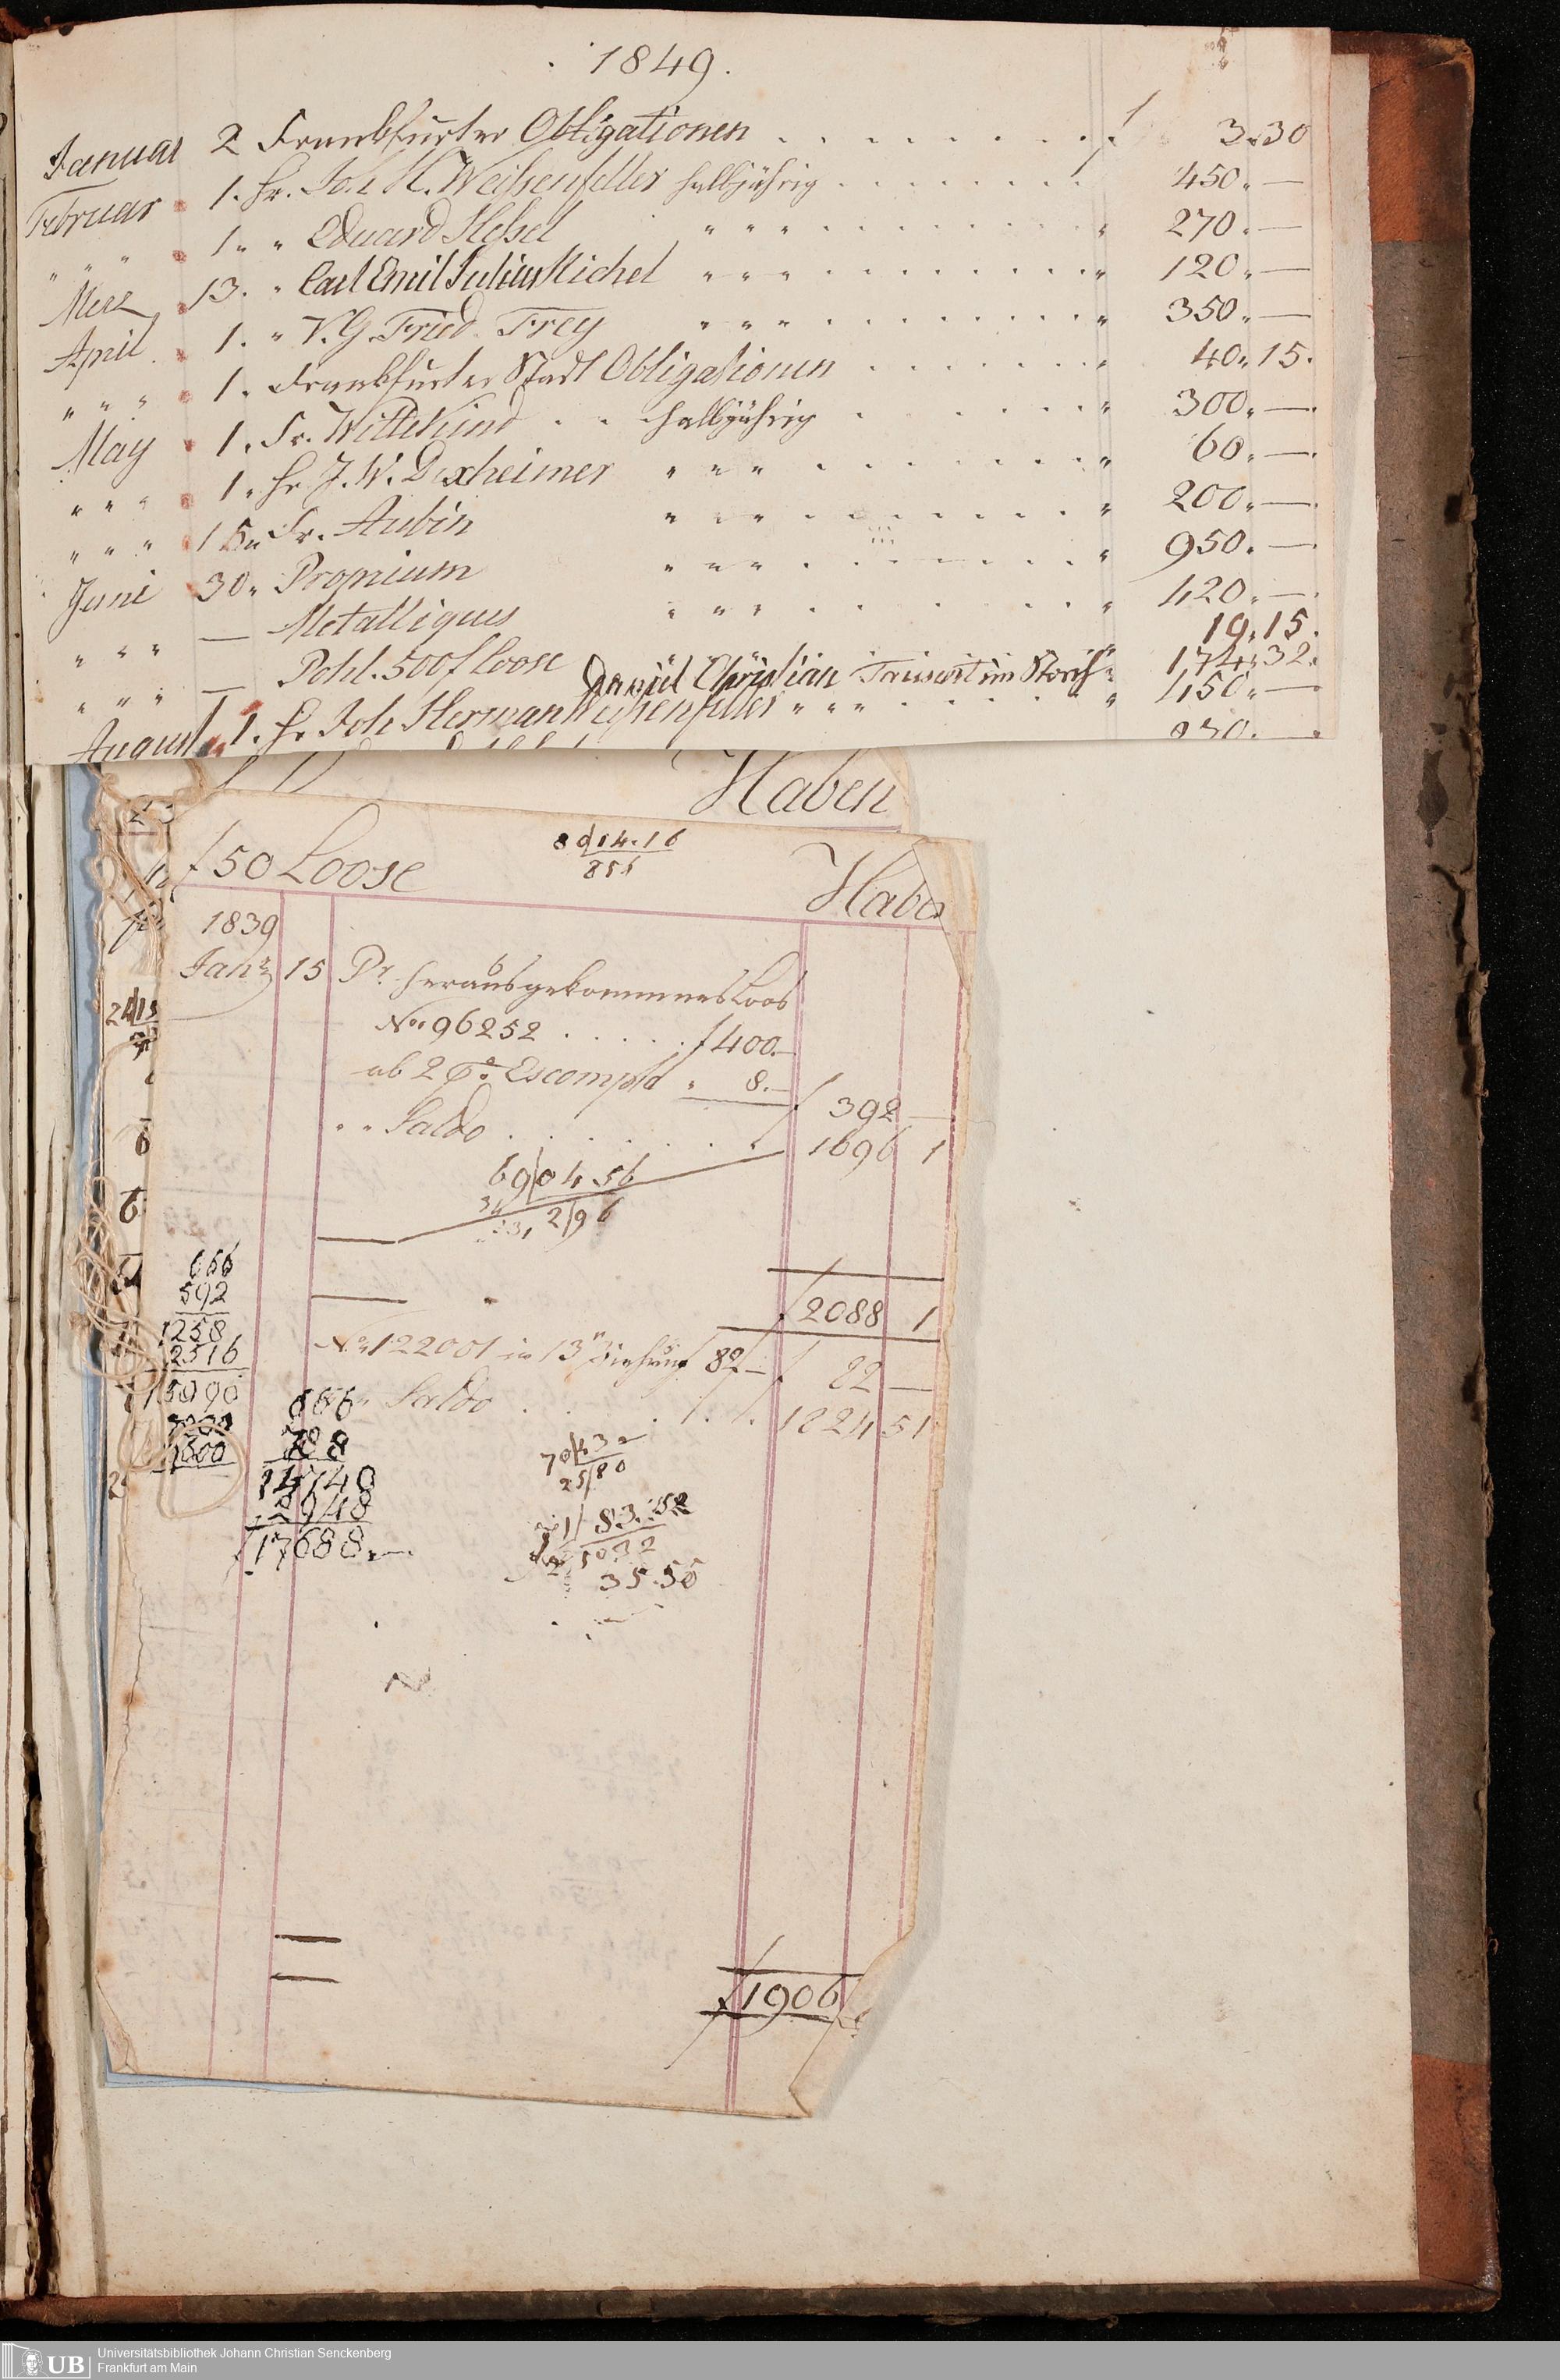 1849.
Januar 2 Frankfurter Obligationen . . . . . . . f 3.30
Februar 1. Hr. Joh. H. Weihenfeller halbjährig . . . . . . . 450. —
" " " 1. " Eduard Hehel " " " . . . . . . . " 270. —
Merz 13. " Carl Emil Julius Michel " " " . . . . . . . " 120. —
April 1. " V. G. Fried. Frey " " " . . . . . . . " 350. —
" " " 1. Frankfurter Stadt Obligationen . . . . . . . " 40. 15.
May 1. Fr. Wittekind . . halbjährig . . . . . . . " 300. —
" " " 1. Hr J. W. Dexheimer " " " . . . . . . . " 60. —
" " " 15. Fr. Aubin " " " . . . . . . . " 200. —
Juni 30. Propium " " " . . . . . . . " 950. —
" " " — Metalliques " " " . . . . . . . " 1,120. —
" " " — Pohl. 500 f Loose " 19. 15.
Daniel Christian im Storch " 174. 32.
August 1. Hr Joh. Herman Weihenfeller " " " . . . . " 1,50. —
Haben
f 50 Loose
8 d 14.16
856
Haben
1839
Janr 15 Pr herausgekommenes Loos
No 96252 . . . . . f 400.—
ab 2 pCo Escompto " 8.— f 392 —
" " Saldo . . . . . . . 1696 1
69 | 04.56
2|96
f 2088 1
No 122001 in 13n Ziehung f 82— f 82 —
" Saldo . . . . 1824 51
666
592
1258
2516
15096
666
14740
2948
f 17688.—
70|43
25|80
83.52
5032
35.50
f 1906
UB Universitätsbibliothek Johann Christian Senckenberg
Frankfurt am Main